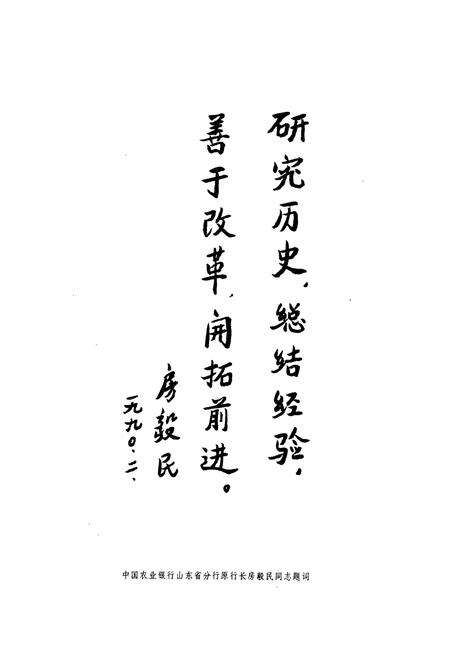 研究历史，总结经验，
善于改革，开拓前进。
房毅民
一九九〇.二、
中国农业银行山东省分行原行长房毅民同志题词